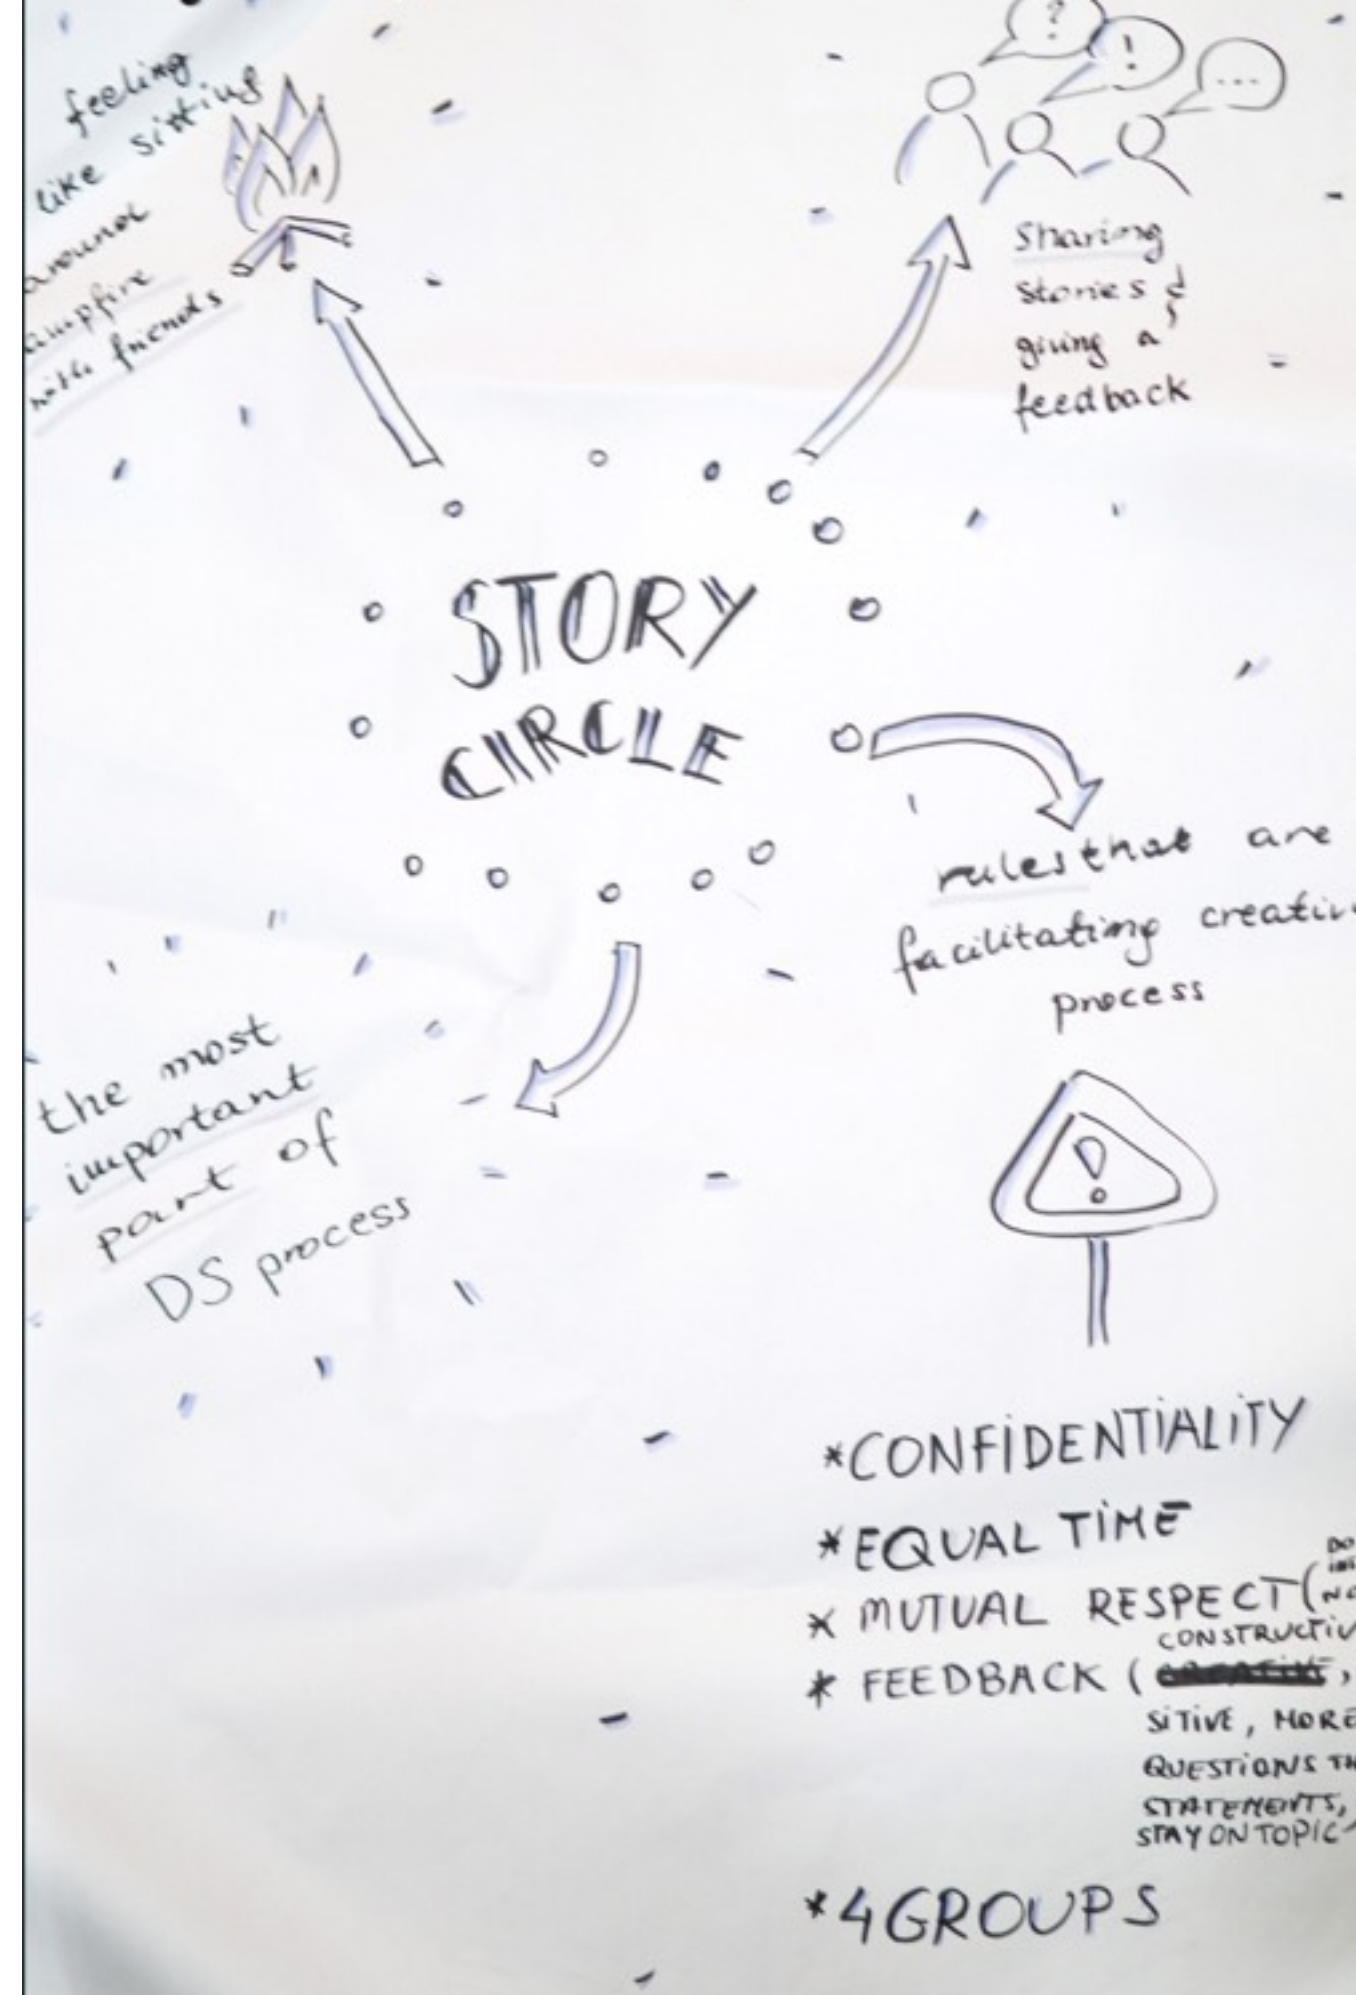 feeling
like sitting
around
campfire
with friends
?
!
...
Sharing
stories &
giving a
feedback
STORY
CIRCLE
rules that are
facilitating creativ
process
the most
important
part of
DS process
!
*CONFIDENTIALITY
*EQUAL TIME
* MUTUAL RESPECT (
CONSTRUCTIV
* FEEDBACK (
SITIVE, MORE
QUESTIONS TH
STATEMENTS,
STAY ON TOPIC
*4 GROUPS